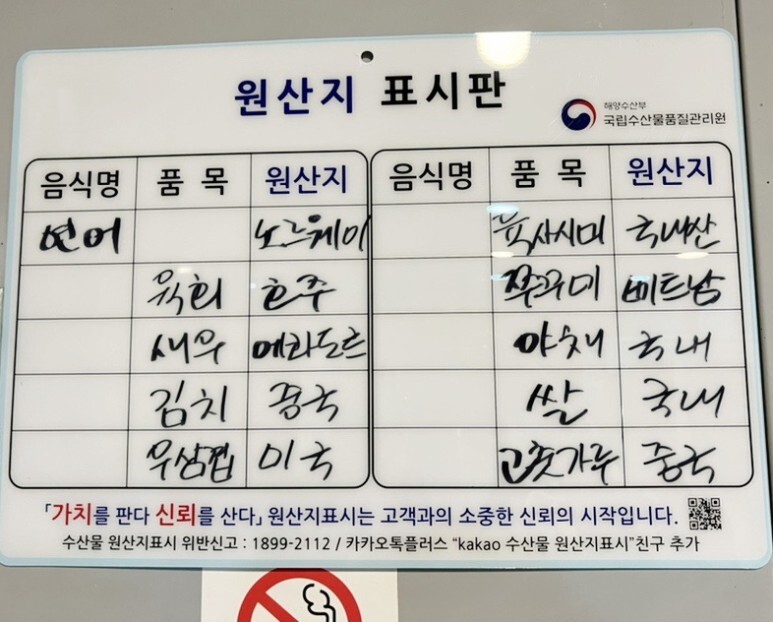 원산지 표시판
해양수산부
국립수산물품질관리원
음식명 품목 원산지 음식명 품목 원산지
연어 노르웨이 육사시미 국내산
육회 호주 쭈꾸미 베트남
새우 에콰도르 야채 국내
김치 중국 쌀 국내
우삼겹 미국 고춧가루 중국
「가치를 판다 신뢰를 산다」 원산지표시는 고객과의 소중한 신뢰의 시작입니다.
수산물 원산지표시 위반신고 : 1899-2112 / 카카오톡플러스 "kakao 수산물 원산지표시"친구 추가